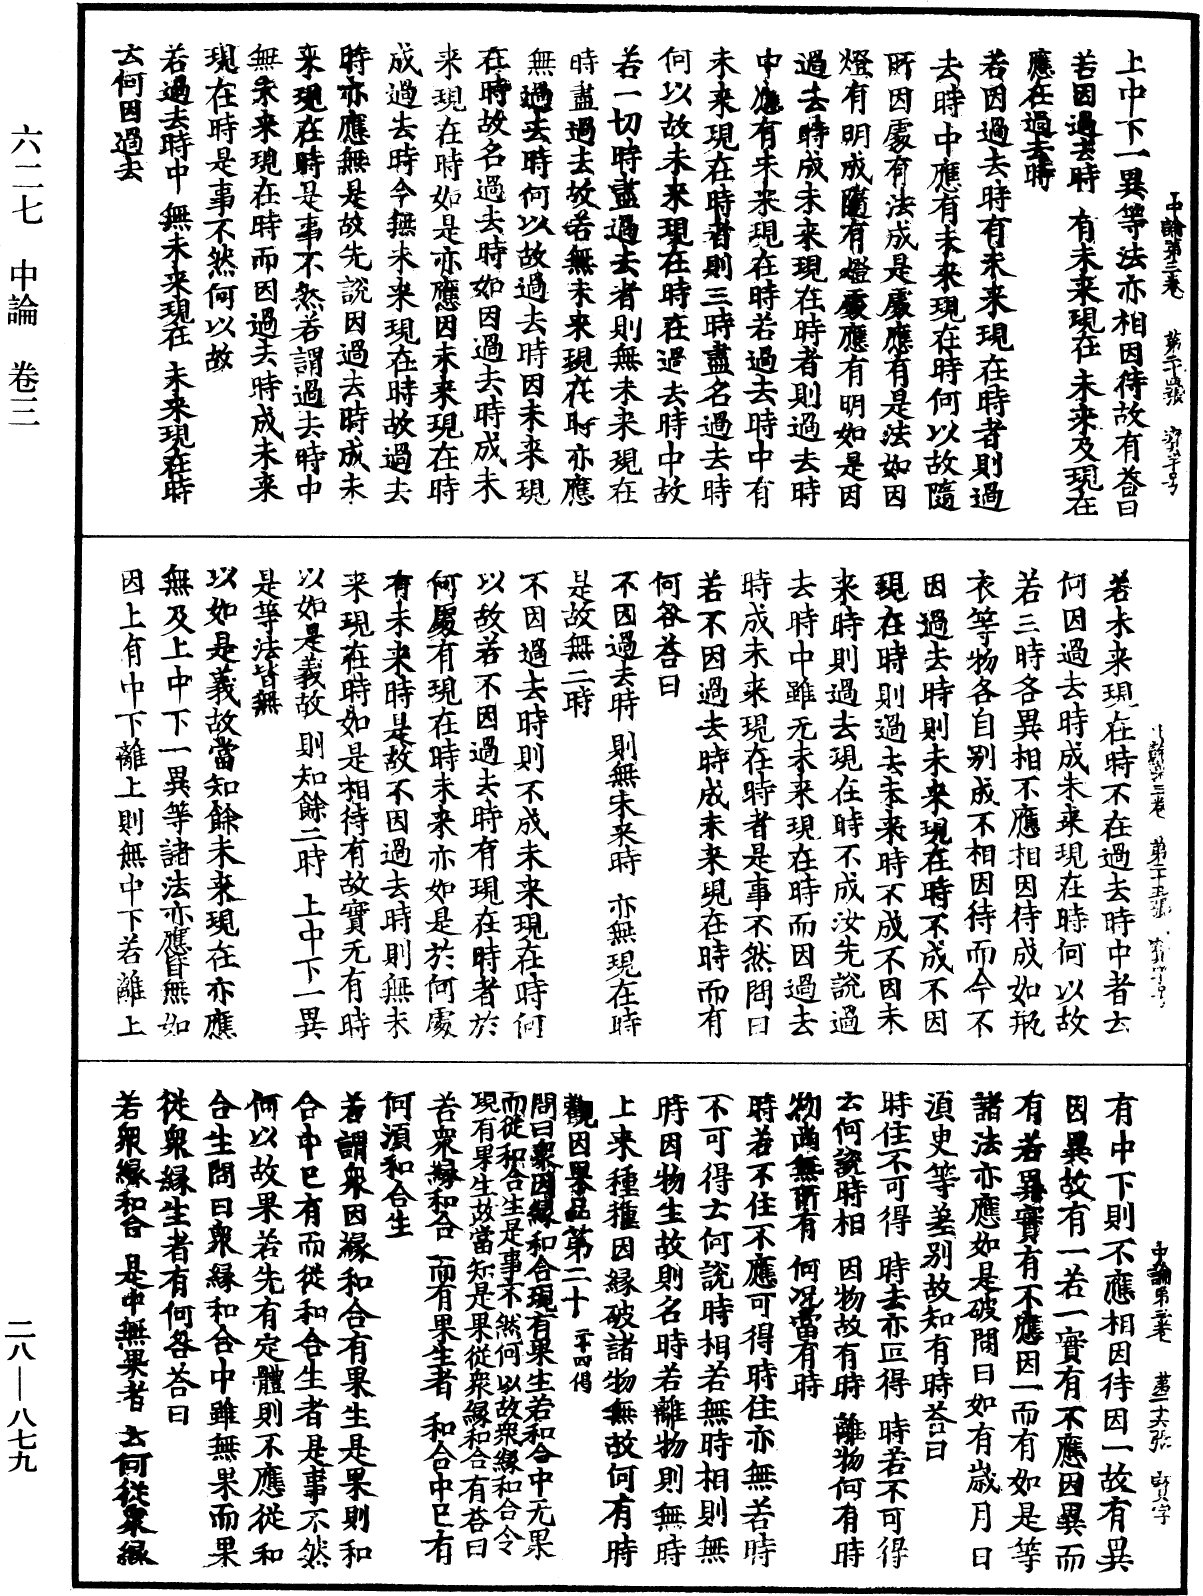 上中下一異等法亦相因待故有荅曰
若因過去時　有未来現在　未来及現在
應在過去時
若因過去時有未来現在時者則過
去時中應有未来現在時何以故隨
所因處有法成是處應有是法如因
燈有明成隨有燈處應有明如是因
過去時成未来現在時者則過去時
中應有未来現在時若過去時中有
未来現在時者則三時盡名過去時
何以故未来現在時在過去時中故
若一切時盡過去者則無未来現在
時盡過去故若無未来現在時亦應
無過去時何以故過去時因未来現
在時故名過去時如因過去時成未
来現在時如是亦應因未来現在時
成過去時今無未来現在時故過去
時亦應無是故先說因過去時成未
来現在時是事不然若謂過去時中
無未来現在時而因過去時成未来
現在時是事不然何以故
若過去時中　無未来現在　未来現在時
云何因過去
若未来現在時不在過去時中者云
何因過去時成未来現在時何以故
若三時各異相不應相因待成如瓶
衣等物各自别成不相因待而今不
因過去時則未来現在時不成不因
現在時則過去未来時不成不因未
来時則過去現在時不成汝先說過
去時中雖无未来現在時而因過去
時成未来現在時者是事不然問曰
若不因過去時成未来現在時而有
何咎荅曰
不因過去時　則無未来時　亦無現在時
是故無二時
不因過去時則不成未来現在時何
以故若不因過去時有現在時者於
何處有現在時未来亦如是於何處
有未来時是故不因過去時則無未
来現在時如是相待有故實无有時
以如是義故　則知餘二時　上中下一異
是等法皆無
以如是義故當知餘未来現在亦應
無及上中下一異等諸法亦應皆無如
因上有中下離上則無中下若離上
有中下則不應相因待因一故有異
因異故有一若一實有不應因異而
有若異實有不應因一而有如是等
諸法亦應如是破問曰如有歲月日
湏臾等差别故知有時荅曰
時住不可得　時去亦叵得　時若不可得
云何說時相　因物故有時　離物何有時
物尚無所有　何况當有時
時若不住不應可得時住亦無若時
不可得云何說時相若無時相則無
時因物生故則名時若離物則無時
上来種種因縁破諸物無故何有時
觀因果品第二十　二十四偈
問曰衆因縁和合現有果生若和合中无果
而從和合生是事不然何以故衆縁和合今
現有果生故當知是果從衆縁和合有荅曰
若衆縁和合　而有果生者　和合中已有
何湏和合生
若謂衆因縁和合有果生是果則和
合中已有而從和合生者是事不然
何以故果若先有定體則不應從和
合生問曰衆縁和合中雖無果而果
從衆縁生者有何咎荅曰
若衆縁和合　是中無果者　云何從衆縁
中論第三卷
六二七　中論　卷三
二八—八七九